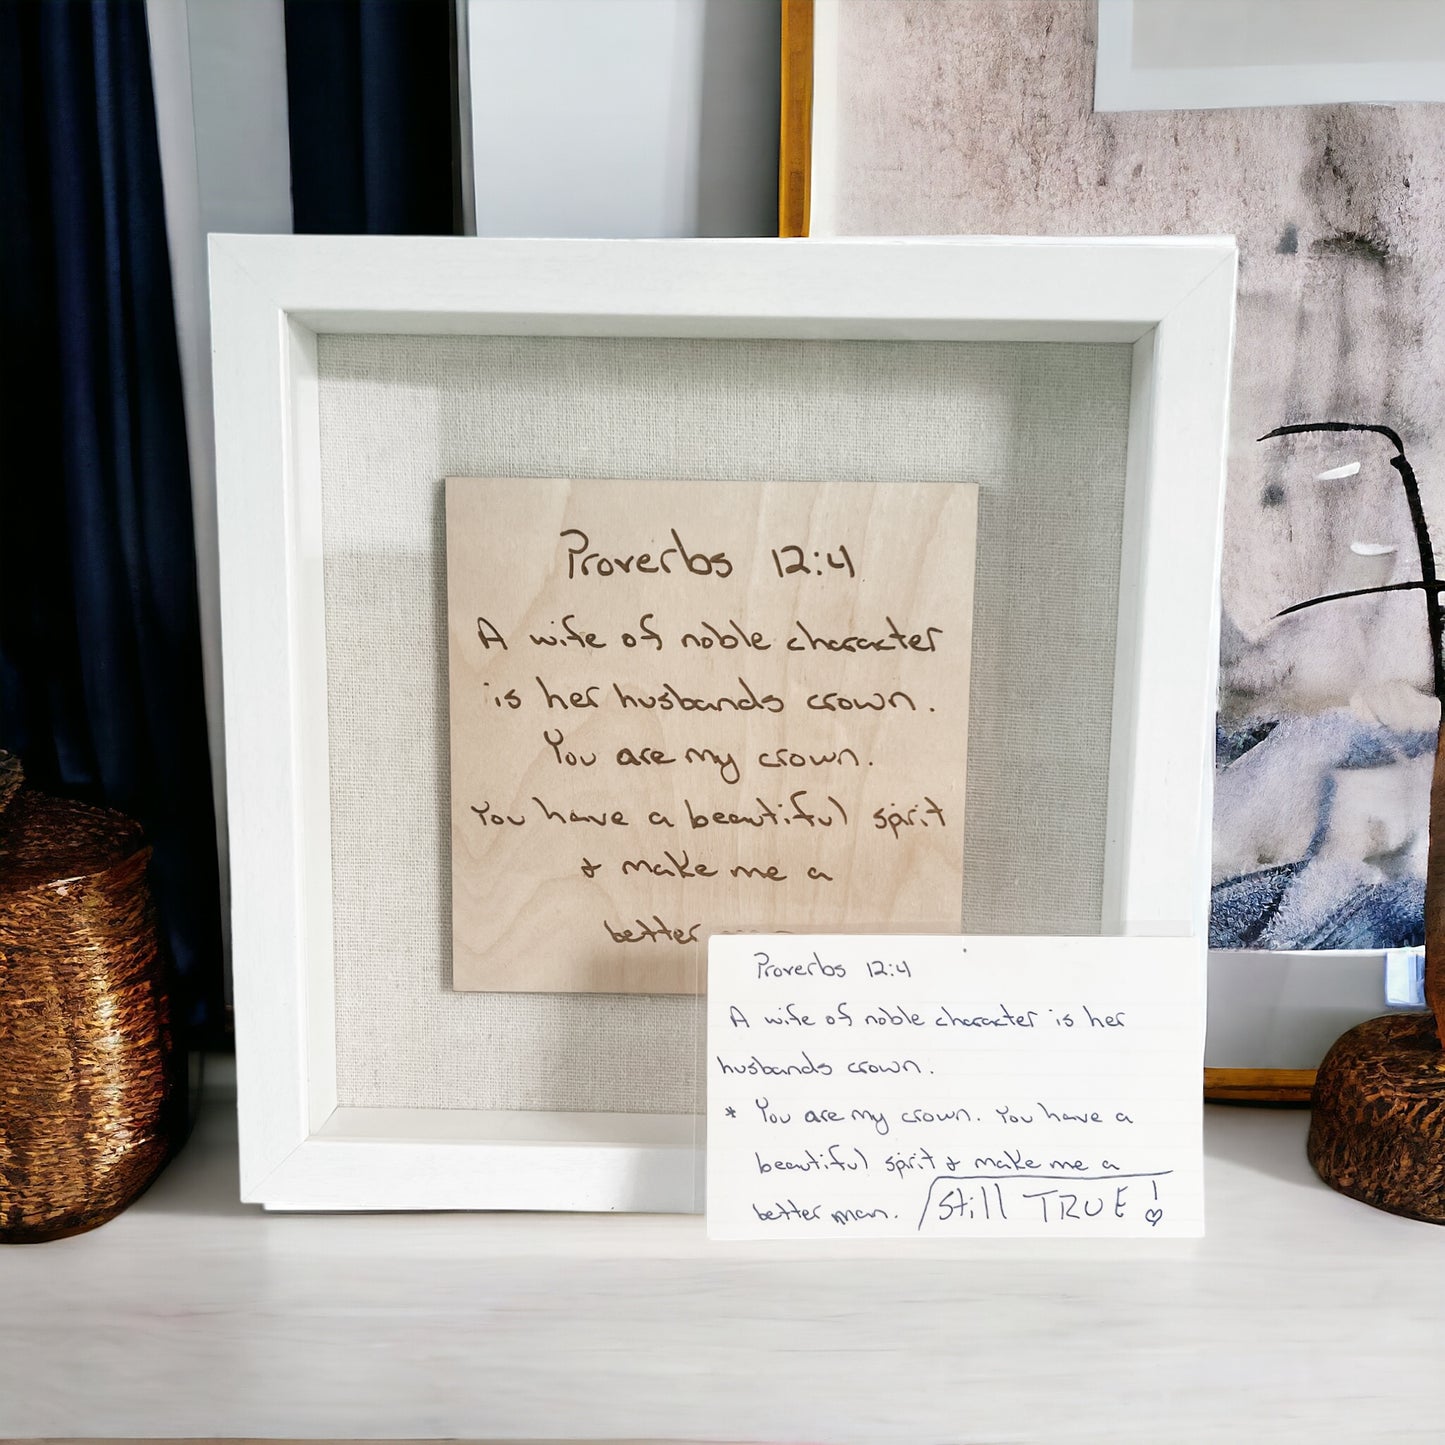 Proverbs 12:4
A wife of noble character
is her husbands crown.
You are my crown.
You have a beautiful spirit
& make me a
better
Proverbs 12:4
A wife of noble character is her
husbands crown.
* You are my crown. You have a
beautiful spirit & make me a
better man. Still TRUE!